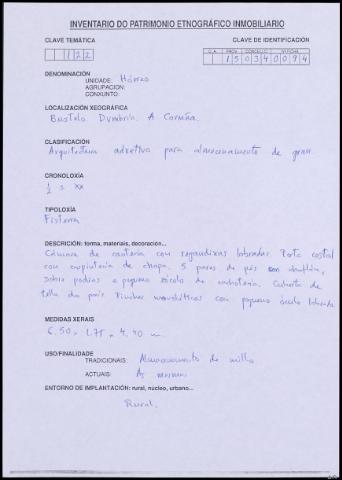 INVENTARIO DO PATRIMONIO ETNOGRÁFICO INMOBILIARIO
CLAVE TEMÁTICA
CLAVE DE IDENTIFICACIÓN
122
C.A. PROV. CONCELLO Nº FICHA
15 034 0094
DENOMINACIÓN
UNIDADE: Hórreo
AGRUPACION:
CONXUNTO:
LOCALIZACIÓN XEOGRÁFICA
Bustelo Dumbría. A Coruña.
CLASIFICACIÓN
Arquitectura adxetiva para almacenamento de gran.
CRONOLOXÍA
1/2 s. XX
TIPOLOXÍA
Fisterra
DESCRIPCIÓN: forma, materiais, decoración...
Cámara de cantería con regandixas labradas. Porta costal
con carpintería de chapa. 5 pares de pés con
sobre padias e pequeno zócalo de cachotería. Cuberta de
tella do país. Pinches monolíticos con pequeno óculo labrado.
MEDIDAS XERAIS
6,50 x 1,75 x 4,40 m.
USO/FINALIDADE
TRADICIONAIS: Almacenamento de millo
ACTUAIS: As mesmas
ENTORNO DE IMPLANTACIÓN: rural, núcleo, urbano...
Rural.